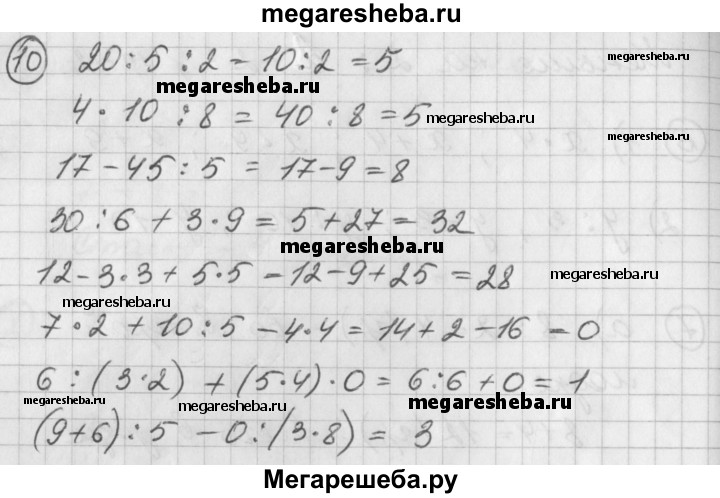 megaresheba.ru
10 20 : 5 : 2 - 10 : 2 = 5
megaresheba.ru
4 · 10 : 8 = 40 : 8 = 5 megaresheba.ru
megaresheba.ru
17 - 45 : 5 = 17 - 9 = 8
30 : 6 + 3 · 9 = 5 + 27 = 32
megaresheba.ru
12 - 3 · 3 + 5 · 5 - 12 - 9 + 25 = 28 megaresheba.ru
megaresheba.ru
7 · 2 + 10 : 5 - 4 · 4 = 14 + 2 - 16 - 0
megaresheba.ru
6 : (3 · 2) + (5 · 4) · 0 = 6 : 6 + 0 = 1
megaresheba.ru megaresheba.ru megaresheba.ru
(9 + 6) : 5 - 0 : (3 · 8) = 3
Мегарешеба.ру